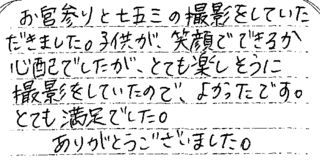 お宮参りと七五三の撮影をしていた
だきました。子供が、笑顔でできるか
心配でしたが、とても楽しそうに
撮影をしていたので、よかったです。
とても満足でした。
ありがとうございました。